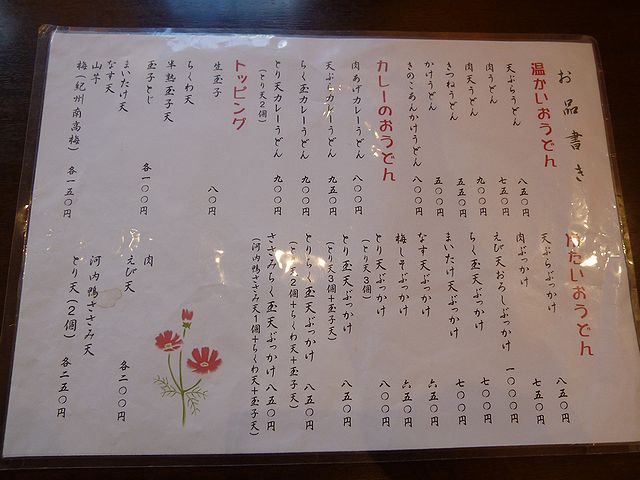 お品書き
温かいおうどん
天ぷらうどん 八五〇円
肉うどん 七五〇円
肉天うどん 九〇〇円
きつねうどん 五五〇円
かけうどん 五〇〇円
きのこあんかけうどん 八〇〇円
カレーのおうどん
肉あげカレーうどん 八〇〇円
天ぷらカレーうどん 九五〇円
ちく玉カレーうどん 九〇〇円
とり天カレーうどん 九〇〇円
(とり天2個)
トッピング
生玉子 八〇円
ちくわ天
半熟玉子天
玉子とじ 各一〇〇円
まいたけ天
なす天
山芋
梅(紀州南高梅) 各一五〇円
冷たいおうどん
天ぷらぶっかけ 八五〇円
肉ぶっかけ 七五〇円
えび天おろしぶっかけ 一〇〇〇円
ちく玉天ぶっかけ 七〇〇円
まいたけ天ぶっかけ 七〇〇円
なす天ぶっかけ 六五〇円
梅しそぶっかけ 六五〇円
とり天ぶっかけ 八〇〇円
(とり天3個)
とり玉天ぶっかけ 八五〇円
(とり天3個+玉子天)
とりちく玉天ぶっかけ 八五〇円
(とり天2個+ちくわ天+玉子天)
ささみちく玉天ぶっかけ 八五〇円
(河内鴨ささみ天1個+ちくわ天+玉子天)
肉
えび天 各二〇〇円
河内鴨ささみ天
とり天(2個) 各二五〇円